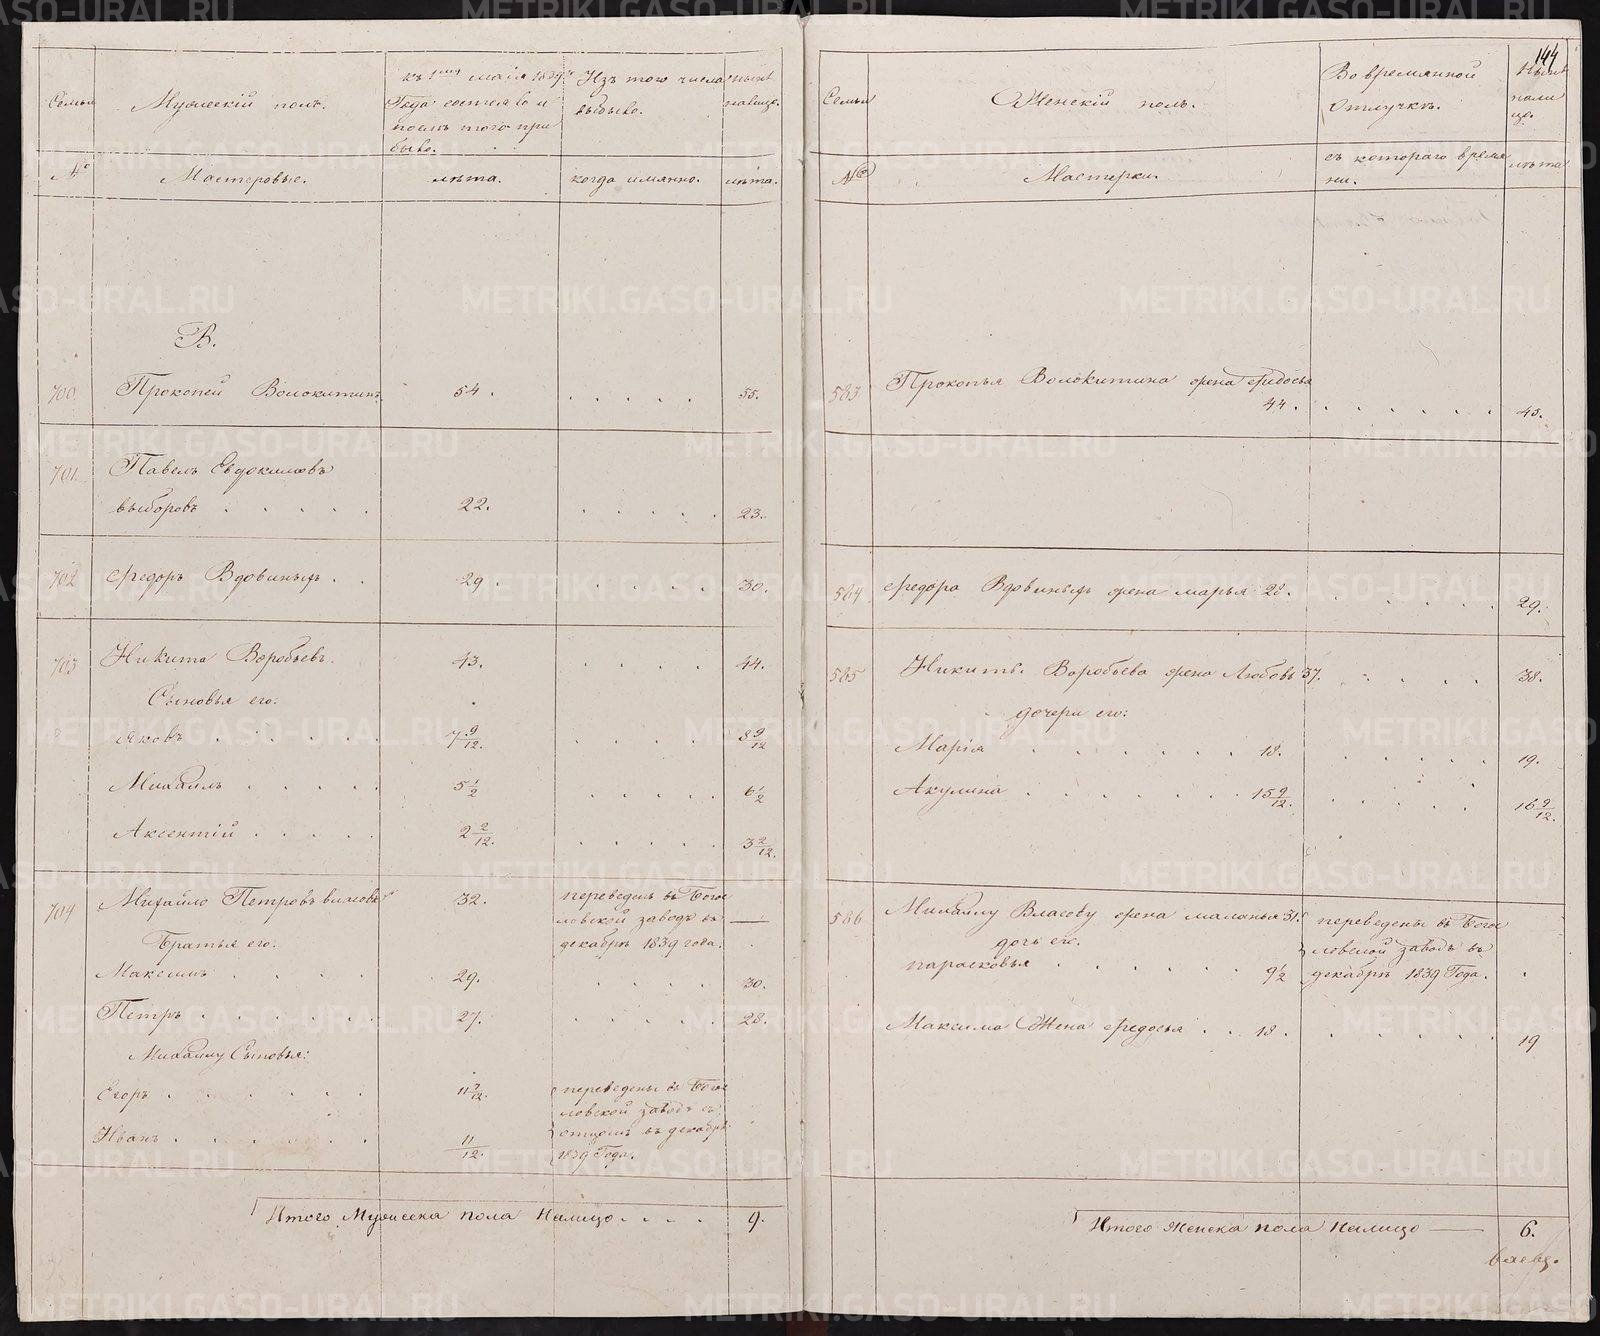 144
Семьи
Мужескій полъ.
къ 1му маія 1839го
Года состояло и
послѣ того при
было.
Изъ того числа
выбыло.
нынѣ
налицо.
№
Мастеровые.
лѣта.
когда имянно.
лѣта.
В.
700. Прокопей Волокитинъ. 54. . . . . . 55.
701. Павелъ Евдокимовъ
выборовъ . . . . . 22. . . . . . 23.
702 Федоръ Вдовиныхъ . . 29. . . . . 30.
703 Никита Воробьевъ. 43. . . . . 44.
Сыновья его:
Яковъ . . . . . 7 9/12. . . . . 8 9/12
Михайлъ . . . . . 5 1/2 . . . . . 6 1/2
Аксентій . . . . 2 2/12. . . . . . 3 2/12.
704 Михайло Петровъ власовъ 32. переведенъ въ Бого
словской заводъ въ —
декабрѣ 1839 года.
Братья его:
Максимъ . . . . 29. . . . . 30.
Петръ . . . . . . 27. . . . . . 28.
Михайлу Сыновья:
Егоръ . . . . . . 11 7/12. переведены въ Бого
словской заводъ съ
Иванъ . . . . . . 11/12. отцомъ въ декабрѣ
1839 Года.
Итого Мужеска пола Налицо . . . . 9.
Семьи
Женскій полъ.
Во времянной
отлучкѣ.
Нынѣ
нали
цо.
№
Мастерки.
съ котораго время
ни.
лѣта
583 Прокопья Волокитина жена федосья
44. . . . . . . 45.
584 Федора Вдовиныхъ жена марья 28. . . . . . 29.
585 Никиты Воробьева жена Любовь 37. . . . . 38.
дочери его:
Марія . . . . . . . 18. . . . . . 19.
Акулина . . . . . . . 15 9/12. . . . . . 16 9/12.
586 Михайлу Власову жена маланья 31. переведены въ Бого
дочь его. словской заводъ въ
парасковья . . . . . . 9 1/2 декабрѣ 1839 Года.
Максима Жена федосья . . 18. . . . . . . 19
Итого Женска пола Налицо — 6.
METRIKI.GASO-URAL.RU